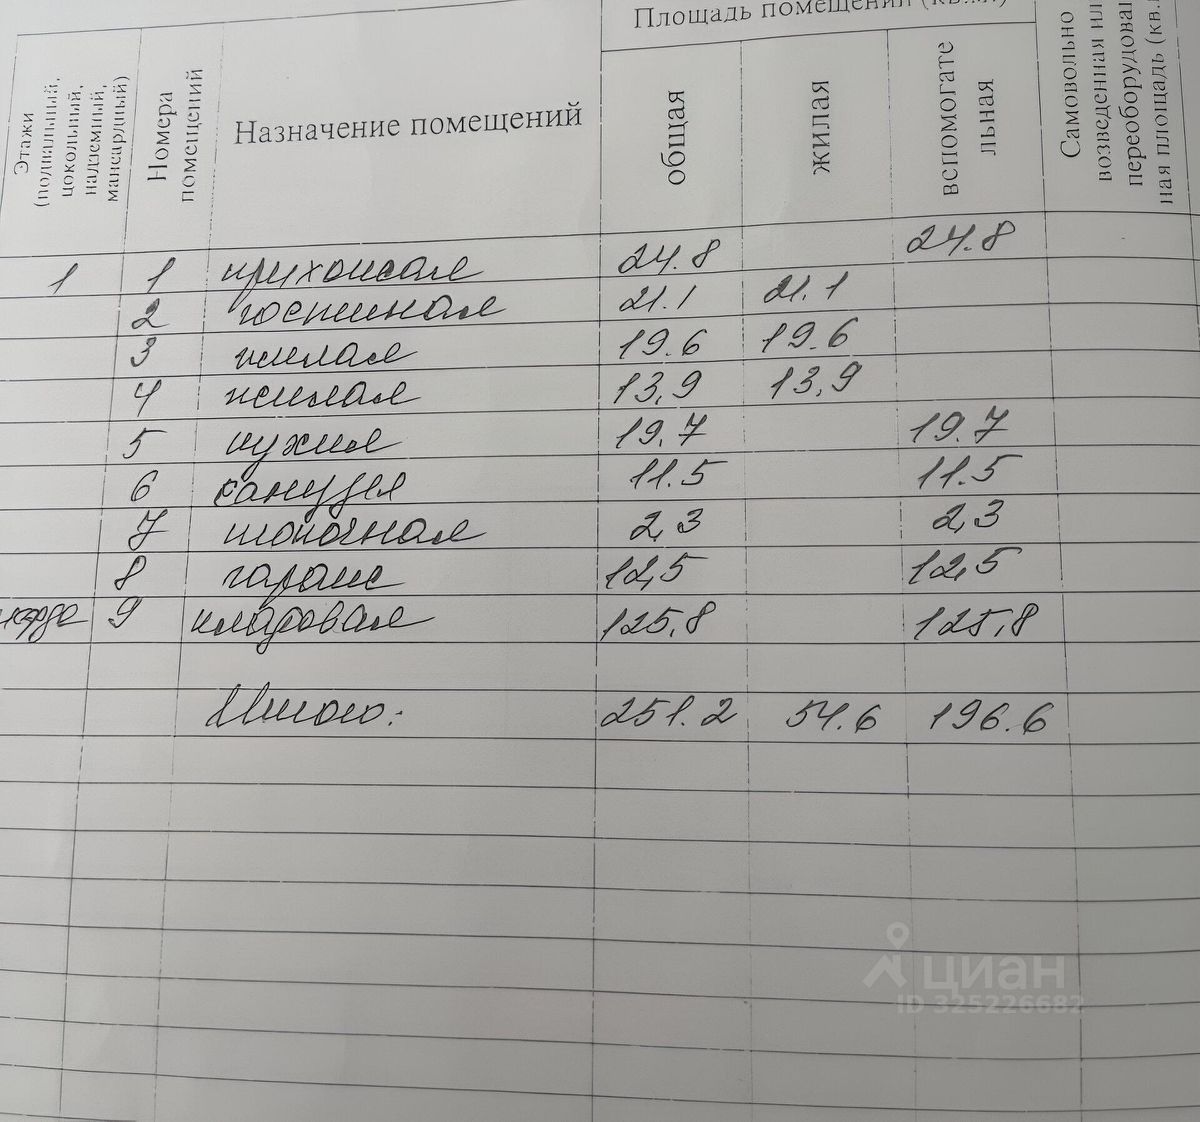 Площадь помещений (кв.м.)
Этажи (подвальный, цокольный, надземный, мансардный)
Номера помещений
Назначение помещений
общая
жилая
вспомогательная
Самовольно возведенная или переоборудованная площадь (кв.
1 1 прихожая 24.8 24.8
2 гостиная 21.1 21.1
3 жилая 19.6 19.6
4 жилая 13,9 13,9
5 кухня 19.7 19.7
6 санузел 11.5 11.5
7 топочная 2,3 2,3
8 гараж 12,5 12,5
9 кладовая 125,8 125,8
Итого: 251.2 54.6 196.6
циан
ID 325226682